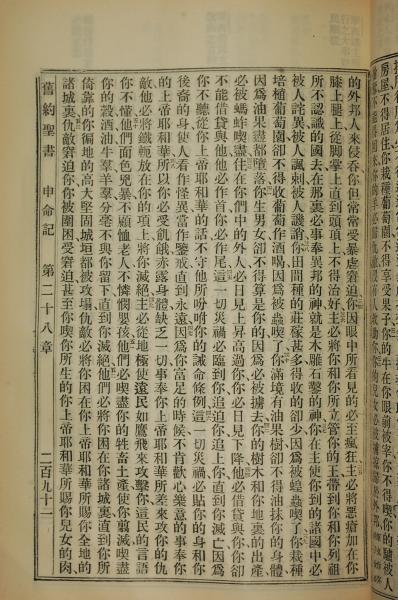 房屋不得居住你栽種葡萄園不得享受果子你的牛在你眼前被宰你不得喫你的驢被人
的外邦人來侵吞你但常常受暴虐窘迫你因眼中所看見的必至瘋狂主必將惡瘡加在你
膝上腿上從脚掌上直到頭頂上不得治好主必將你和你所立管你的王帶到你和你列祖
所不認識的國去在那裏必事奉異邦的神就是木雕石鑿的神你在主使你到的諸國中必
被人詫異被人諷刺被人譏誚你田間種的莊稼甚多得收的卻少因爲被蝗蟲喫了你栽種
培植葡萄園卻不得收葡萄作酒喝因爲被蟲喫了你滿境有油果樹卻不得油抹你的身體
因爲油果盡都墮落你生男女卻不得算是你的因爲必被擄去你的樹木和你地裏的出產
必被螞蚱喫盡住在你們中的外人必日見上昇高過你你必日見下降他必借貸與你你卻
不能借貸與他他必作首你必作尾這一切災禍必臨到你追迫你追上你直到你滅亡因
你不聽從你上帝耶和華的話不守他所吩咐你的誡命條例這一切災禍必貼你的身和你
後裔的身使人看作怪異當作鑒戒直到永遠因爲你富足的時候不肯歡心樂意的事奉你
的上帝耶和華所以你必受飢餓赤露身體缺乏一切事奉你上帝耶和華所差來攻你的仇
敵他必將鐵軛放在你的頸項上將你滅絕主必從地極使遠民如鷹飛來攻擊你這民的言語
你不懂他們面色兇暴不顧恤老人不憐憫嬰孩他們必喫盡你的牲畜土產使你翦滅喫盡
你的穀酒油牛羣羊羣分毫不與你留下直到你滅絕他們必將你困在你諸城裏直到你所
倚靠的你徧地的高大堅固城垣都被攻塌仇敵必將你困在你上帝耶和華所賜你全地的
諸城裏仇敵窘迫你你被圍困受窘迫甚至你喫你所生的你上帝耶和華所賜你兒女的肉
舊約聖書 申命記 第二十八章 二百九十二